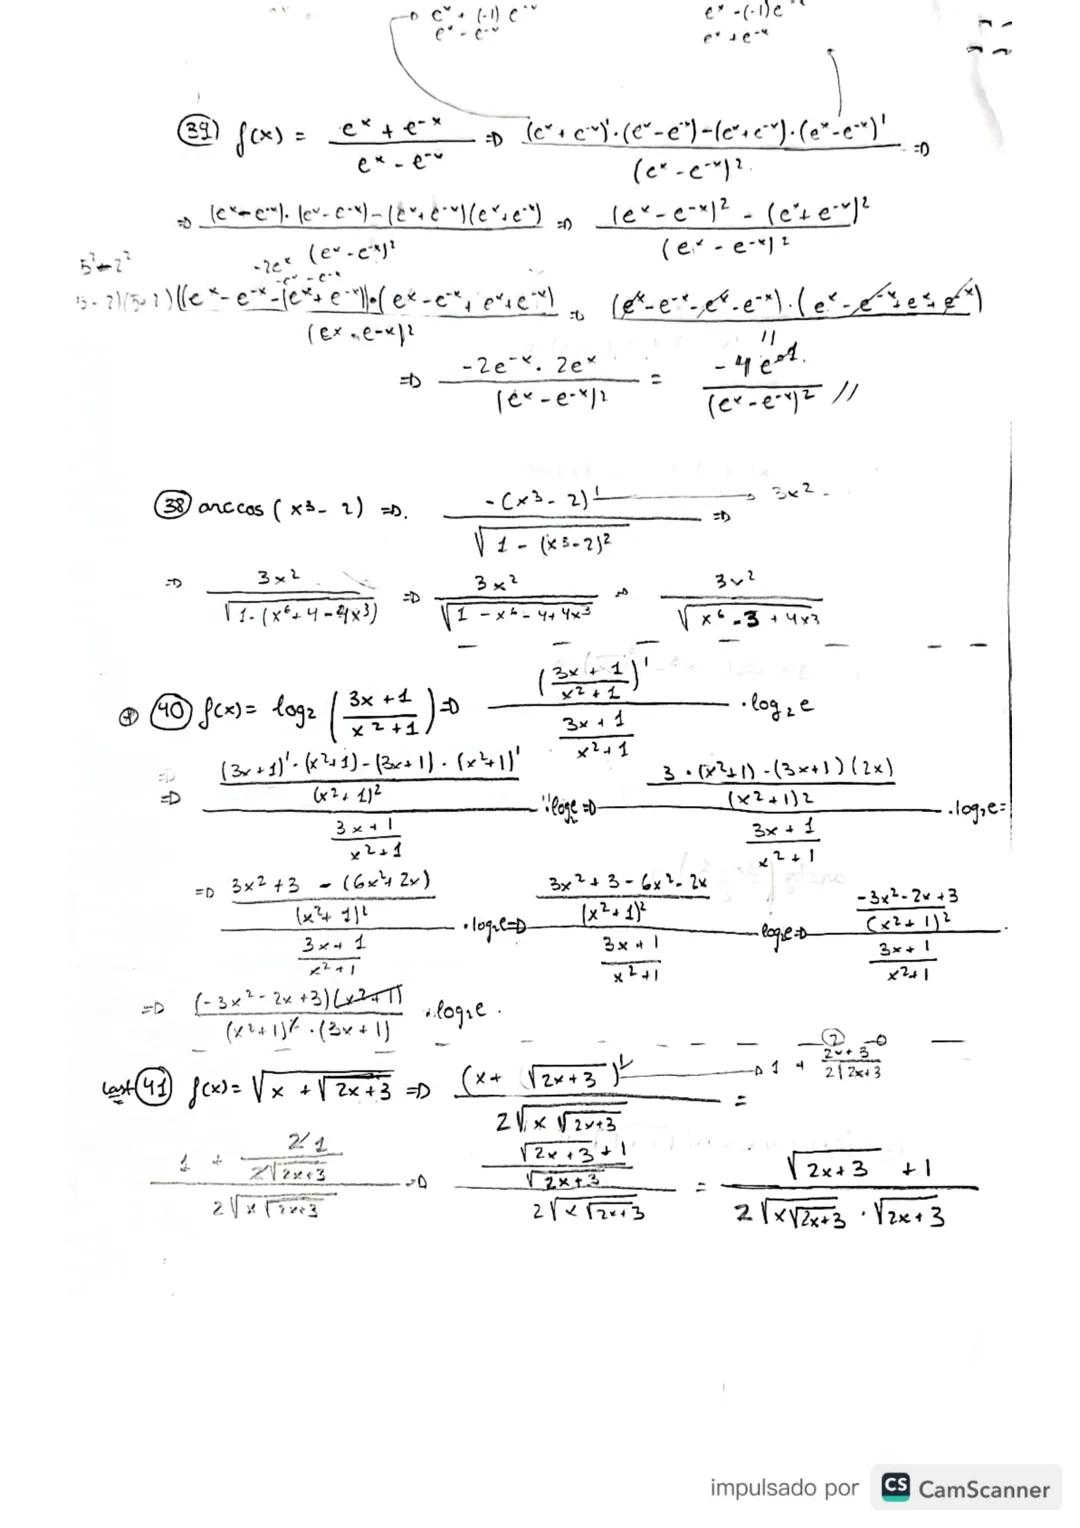 e^x + (-1) e^-x     e^x - (-1) e^-x
e^x - e^-x     e^x + e^-x
(39) f(x) = (e^x + e^-x)/(e^x - e^-x) => ((e^x + e^-x)'·(e^x - e^-x) - (e^x + e^-x)·(e^x - e^-x)')/(e^x - e^-x)² =>
=> ((e^x - e^-x)·(e^x - e^-x) - (e^x + e^-x)(e^x + e^-x))/(e^x - e^-x)² => ((e^x - e^-x)² - (e^x + e^-x)²)/(e^x - e^-x)²
5² - 2²     -2e^x     -e^x - e^-x
(5 - 2)(5+2) ((e^x - e^-x - (e^x + e^-x))·(e^x - e^-x + e^x + e^-x))/(e^x - e^-x)² => (e^x - e^-x - e^x - e^-x)·(e^x - e^-x + e^x + e^-x)
=> (-2e^-x · 2e^x)/(e^x - e^-x)² = (-4 e^0 1)/(e^x - e^-x)² //
(38) arccos (x³ - 2) => (-(x³ - 2)')/√(1 - (x³-2)²) → 3x² =>
=> 3x²/√(1 - (x⁶ + 4 - 4x³)) => 3x²/√(1 - x⁶ - 4 + 4x³) => 3x²/√(x⁶ - 3 + 4x³)
(40) f(x) = log₂ ((3x + 1)/(x² + 1)) => (((3x + 1)/(x² + 1))')/((3x + 1)/(x² + 1)) · log₂e
=> (((3x + 1)'·(x² + 1) - (3x + 1)·(x² + 1)')/(x² + 1)²)/((3x + 1)/(x² + 1)) · log₂e => ((3·(x² + 1) - (3x + 1)(2x))/(x² + 1)²)/((3x + 1)/(x² + 1)) · log₂e =
=> ((3x² + 3 - (6x² + 2x))/(x² + 1)²)/((3x + 1)/(x² + 1)) · log₂e => ((3x² + 3 - 6x² - 2x)/(x² + 1)²)/((3x + 1)/(x² + 1)) log₂e => ((-3x² - 2x + 3)/(x² + 1)²)/((3x + 1)/(x² + 1))
=> ((-3x² - 2x + 3)(x² + 1))/((x² + 1)²·(3x + 1)) · log₂e.
last (41) f(x) = √(x + √(2x+3)) => ((x + √(2x+3))')/(2√(x √(2x+3))) → 1 + (2x+3)/(2√(2x+3)) → (2) =
(1 + 2 1/(2√(2x+3)))/(2√(x √(2x+3))) => ((√(2x+3) + 1)/√(2x+3))/(2√(x √(2x+3))) = (√(2x+3) + 1)/(2√(x√(2x+3)) · √(2x+3))
impulsado por CS CamScanner